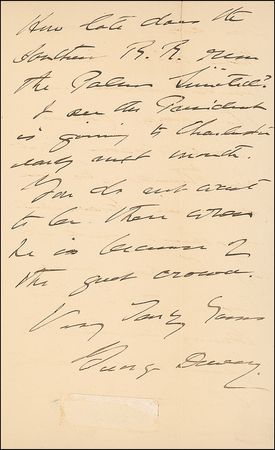 How late does the
Southern R. R. run
the Palm Limited?
I see the President
is going to Charleston
early next month.
You do not want
to be there when
he is because of
the great crowd.
Very Truly Yours
George Dewey.